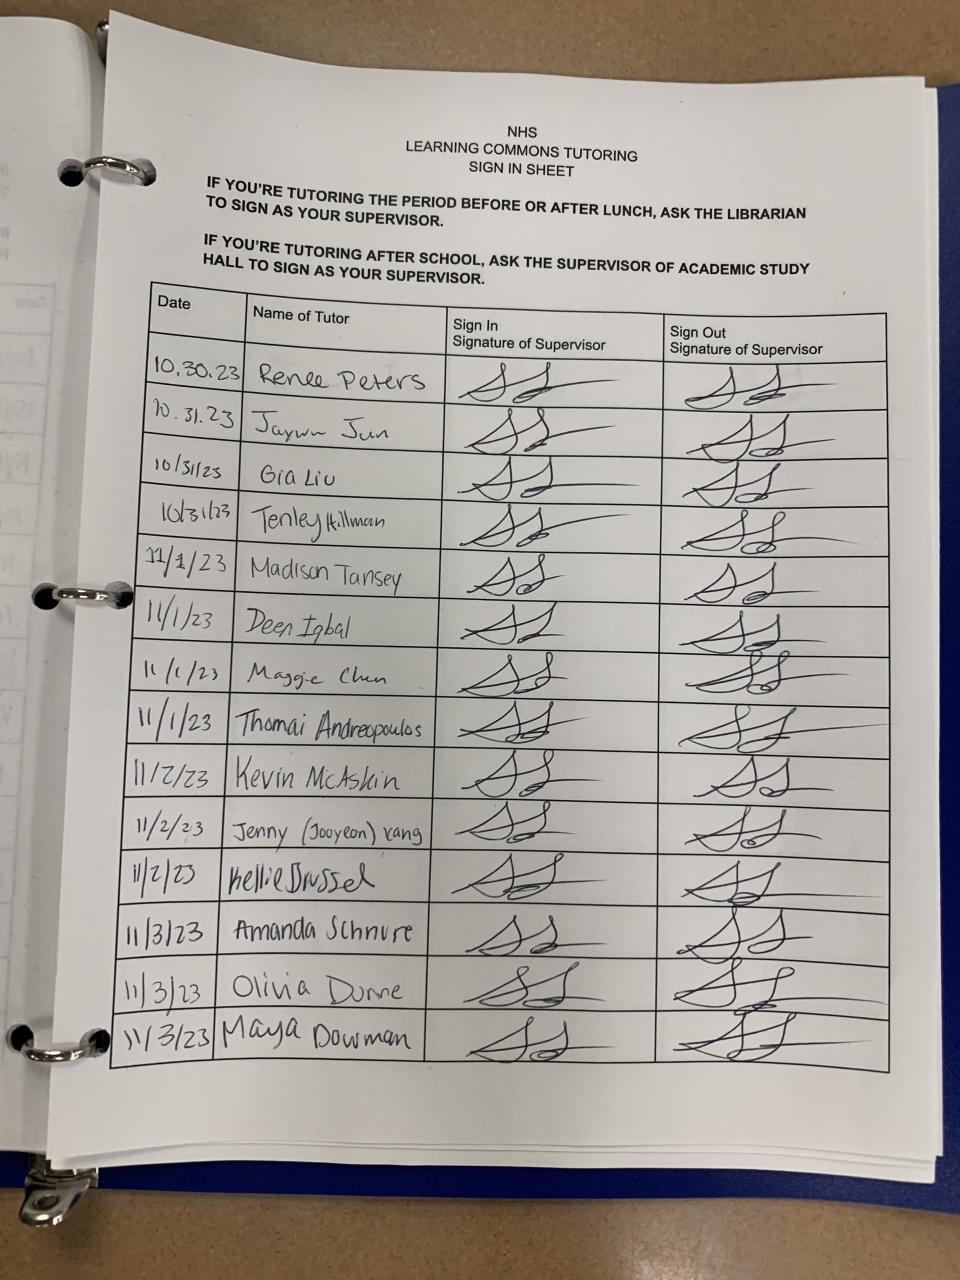 NHS
LEARNING COMMONS TUTORING
SIGN IN SHEET
IF YOU'RE TUTORING THE PERIOD BEFORE OR AFTER LUNCH, ASK THE LIBRARIAN
TO SIGN AS YOUR SUPERVISOR.
IF YOU'RE TUTORING AFTER SCHOOL, ASK THE SUPERVISOR OF ACADEMIC STUDY
HALL TO SIGN AS YOUR SUPERVISOR.
Date Name of Tutor Sign In Sign Out
Signature of Supervisor Signature of Supervisor
10.30.23 Renee Peters
10.31.23 Jun
10/31/23 Gia Liu
10/31/23 Tenley Hillman
11/1/23 Madison Tansey
11/1/23 Deen Iqbal
11/1/23 Maggie Chen
11/1/23 Thomai Andreopoulos
11/2/23 Kevin McAskin
11/2/23 Jenny (Jooyeon) Yang
11/2/23 Kellie Drussel
11/3/23 Amanda Schnure
11/3/23 Olivia Dunne
11/3/23 Maya Dowman